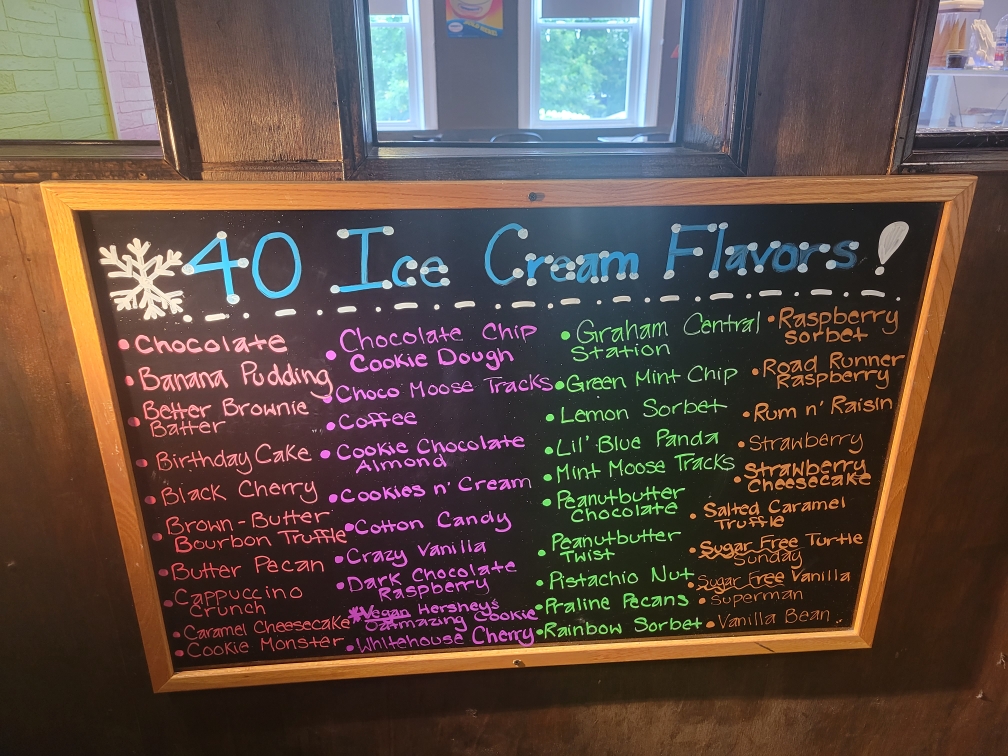 40 Ice Cream Flavors!
• Chocolate
• Banana Pudding
• Better Brownie
Batter
• Birthday Cake
• Black Cherry
• Brown-Butter
Bourbon Truffle
• Butter Pecan
• Cappuccino
Crunch
• Caramel Cheesecake
• Cookie Monster
• Chocolate Chip
Cookie Dough
• Choco Moose Tracks
• Coffee
• Cookie Chocolate
Almond
• Cookies n' Cream
• Cotton Candy
• Crazy Vanilla
• Dark Chocolate
Raspberry
*Vegan Hershey's
Oatmazing Cookie
• Whitehouse Cherry
• Graham Central
Station
• Green Mint Chip
• Lemon Sorbet
• Lil' Blue Panda
• Mint Moose Tracks
• Peanutbutter
Chocolate
• Peanutbutter
Twist
• Pistachio Nut
• Praline Pecans
• Rainbow Sorbet
• Raspberry
Sorbet
• Road Runner
Raspberry
• Rum n' Raisin
• Strawberry
• Strawberry
Cheesecake
• Salted Caramel
Truffle
• Sugar Free Turtle
Sunday
• Sugar Free Vanilla
• Superman
• Vanilla Bean